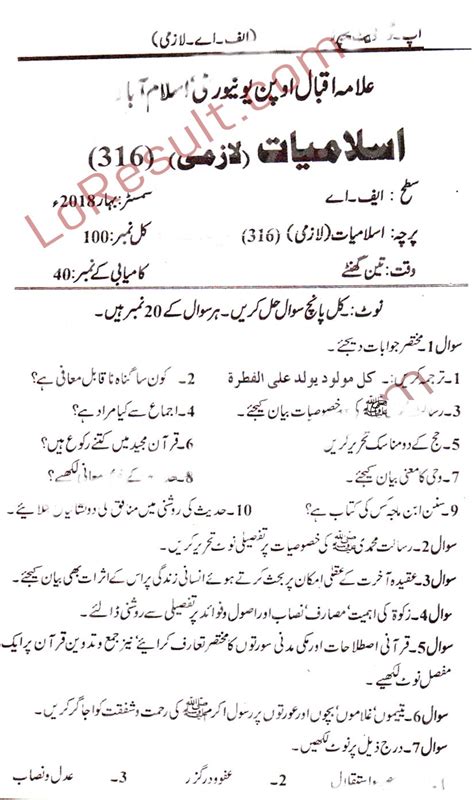 (ایف۔اے۔لازمی)
علامہ اقبال اوپن یونیورسٹی اسلام آباد
اسلامیات (لازمی) (316)
سطح: ایف۔اے سمسٹر: بہار 2018ء
پرچہ: اسلامیات (لازمی) (316) کل نمبر: 100
وقت: تین گھنٹے کامیابی کے نمبر: 40
نوٹ: کل پانچ سوال حل کریں۔ ہر سوال کے 20 نمبر ہیں۔
سوال 1۔ مختصر جوابات دیجئے۔
1۔ ترجمہ کریں: کل مولود یولد علی الفطرۃ 2۔ کون سا گناہ ناقابل معافی ہے؟
3۔ رسالت ﷺ کی خصوصیات بیان کیجئے۔ 4۔ اجماع سے کیا مراد ہے؟
5۔ حج کے دو مناسک تحریر کریں 6۔ قرآن مجید میں کتنے رکوع ہیں؟
7۔ وحی کا معنی بیان کیجئے۔ 8۔ کے معانی لکھیے؟
9۔ سنن ابن ماجہ کس کی کتاب ہے؟ 10۔ حدیث کی روشنی میں منافق کی دو نشانیاں بتلائیے۔
سوال 2۔ رسالت محمدی ﷺ کی خصوصیات پر تفصیلی نوٹ تحریر کریں۔
سوال 3۔ عقیدہ آخرت کے عقلی امکان پر بحث کرتے ہوئے انسانی زندگی پر اس کے اثرات بھی بیان کیجئے۔
سوال 4۔ زکوٰۃ کی اہمیت' مصارف' نصاب اور اصول و فوائد پر تفصیلی سے روشنی ڈالئے۔
سوال 5۔ قرآنی اصطلاحات اور مکی مدنی سورتوں کا مختصر تعارف کرائیے' نیز جمع و تدوین قرآن پر ایک
مفصل نوٹ لکھیے۔
سوال 6۔ یتیموں' غلاموں' بچوں اور عورتوں پر رسول اکرم ﷺ کی رحمت و شفقت کو اجاگر کریں۔
سوال 7۔ درج ذیل پر نوٹ لکھیں۔
1۔ استقلال 2۔ عفو و درگزر 3۔ عدل و انصاف
LoResult.com